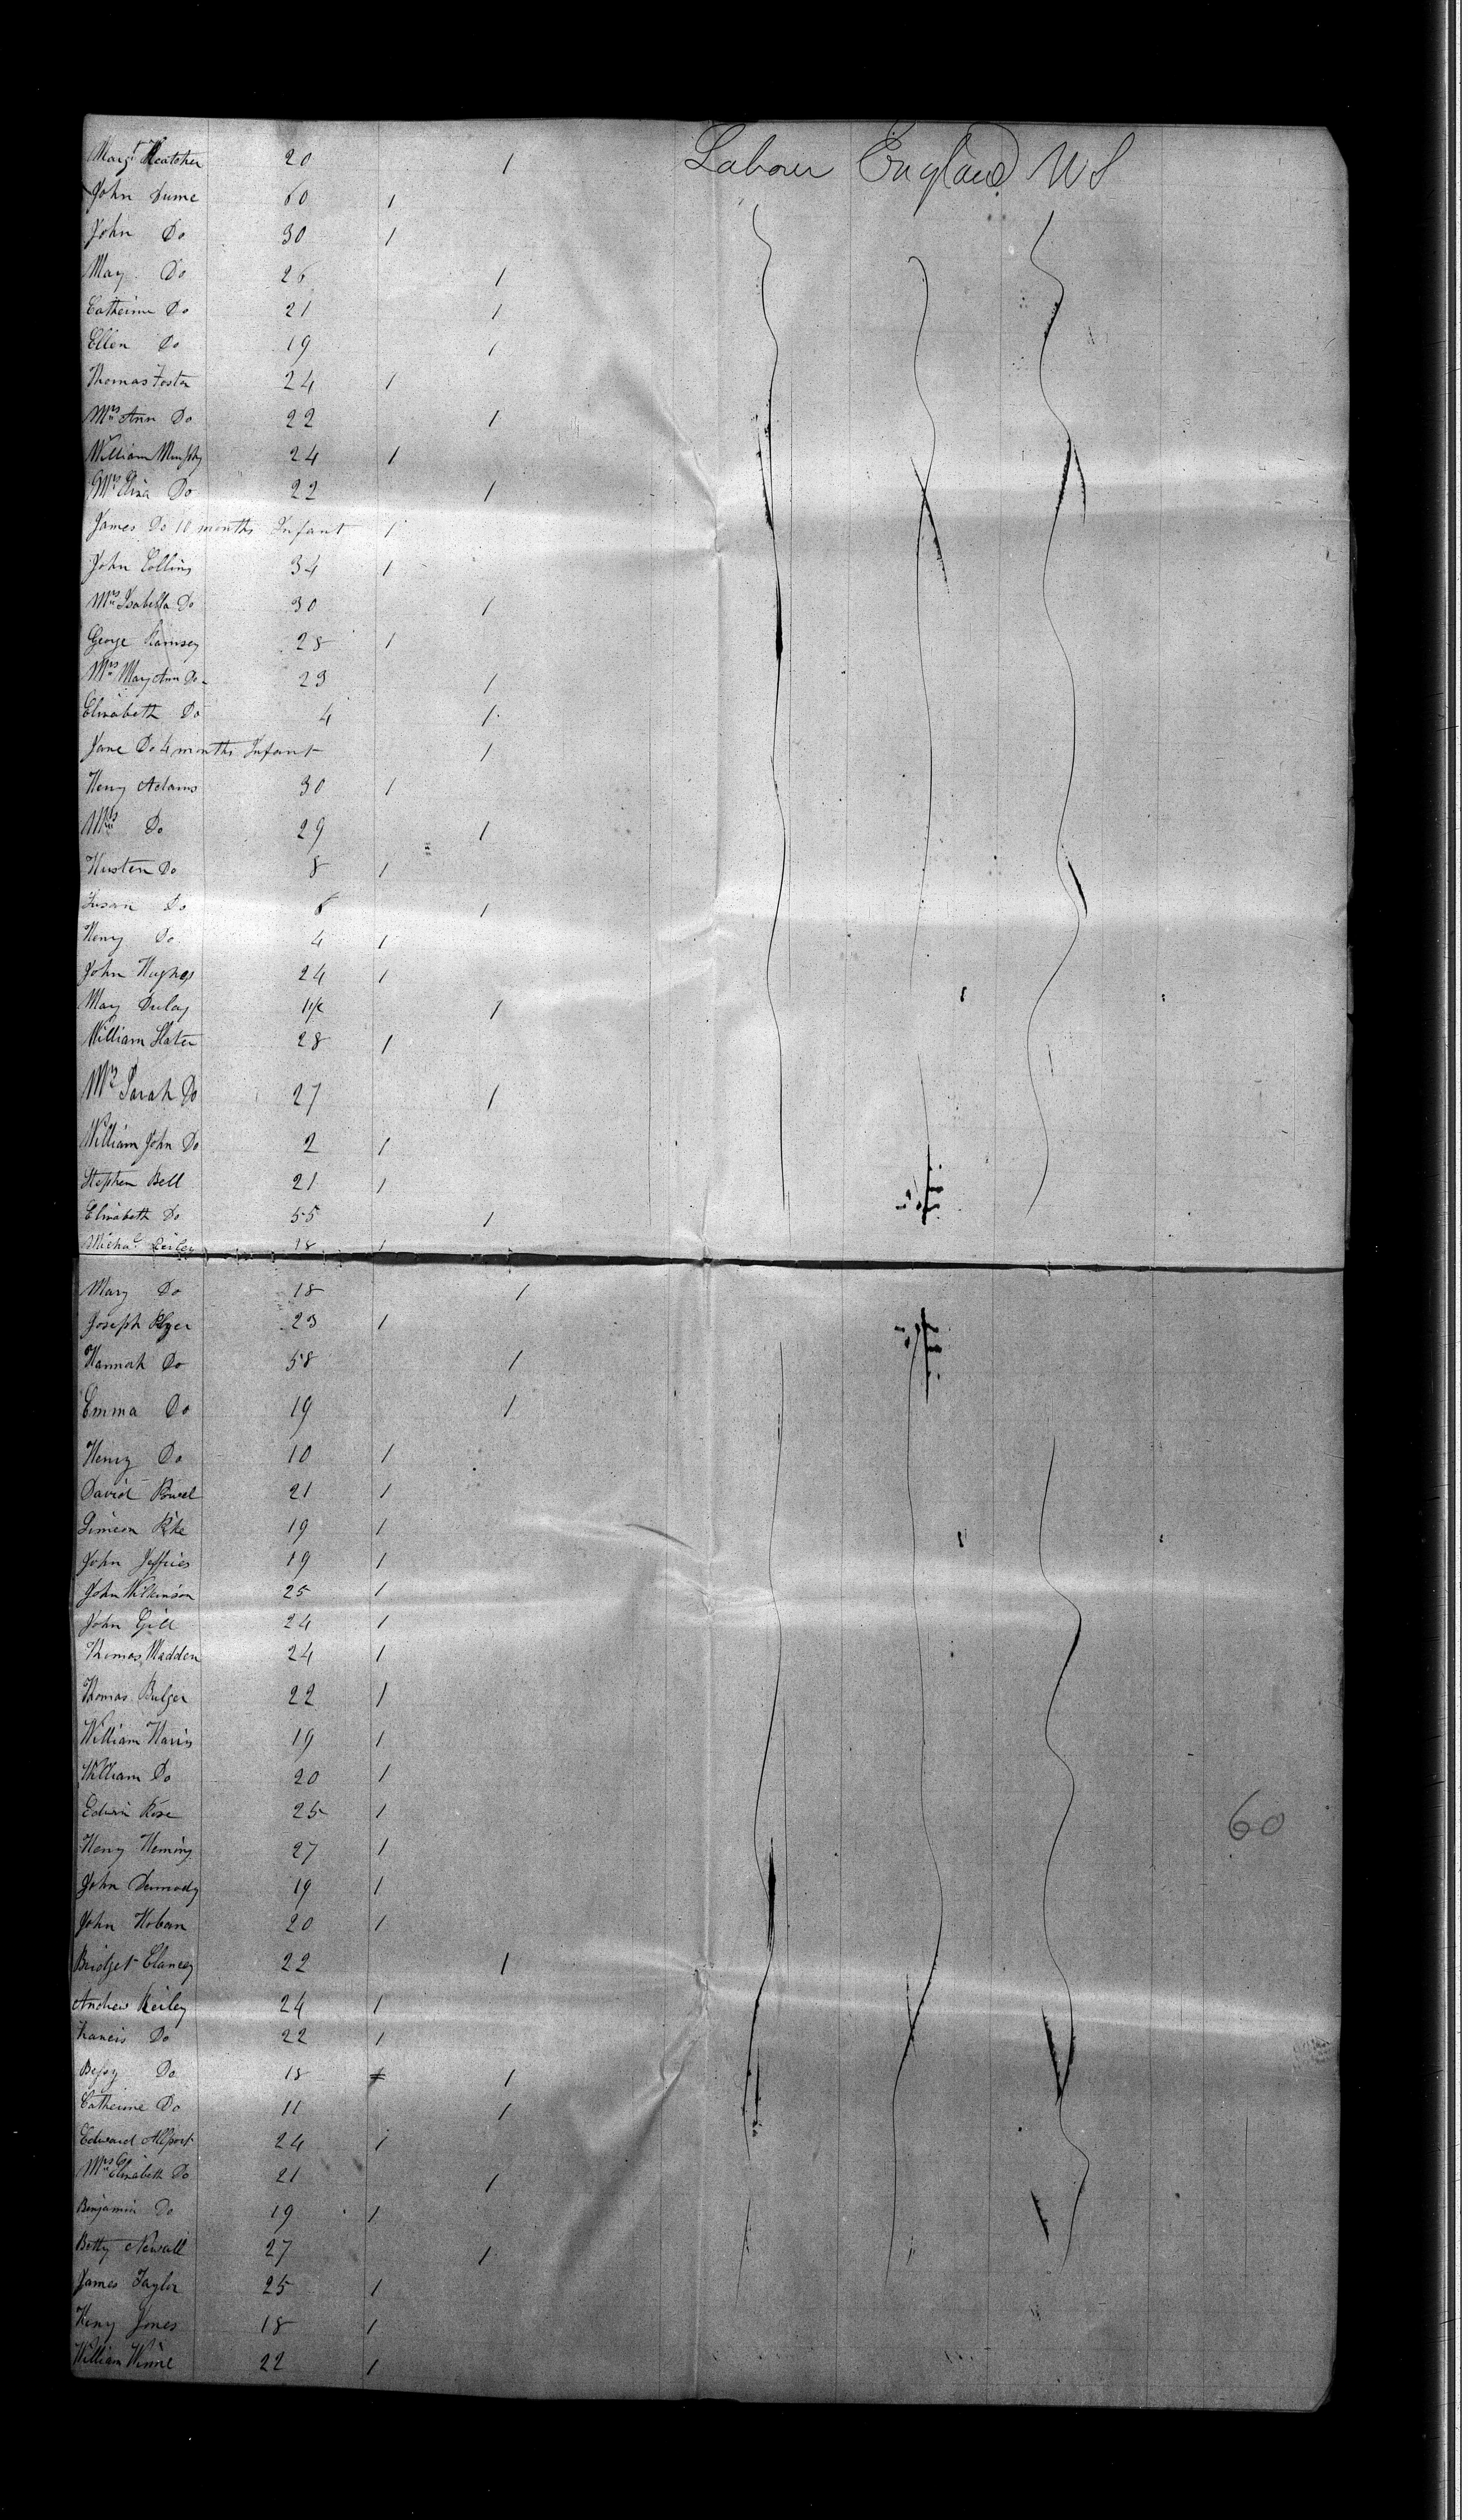 Margt 20 1 Labour England US
John 60 1
John Do 30 1
May Do 26 1
Catherine Do 21 1
Ellen Do 19 1
Thomas Foster 24 1
Mrs Ann Do 22 1
William Murphy 24 1
Mrs Eliza Do 22 1
James Do 10 months Infant 1
John Collins 34 1
Mrs Isabella Do 30 1
George Ramsey 28 1
Mrs Mary Ann Do 23 1
Elisabeth Do 4 1
Jane Do 4 months Infant 1
Henry Adams 30 1
Mrs Do 29 1
Husten Do 8 1
Susan Do 6 1
Henry Do 4 1
John Hughes 24 1
May 1
William Slater 28 1
Mrs Sarah Do 27 1
William John Do 2 1
Stephen Bell 21 1
Elisabeth Do 55 1
Michal Reiley 18 1
Mary Do 18 1
Joseph 23 1
Hannah Do 58 1
Emma Do 19 1
Henry Do 10 1
David Powel 21 1
Simeon Pike 19 1
John Jeffries 19 1
John Wilkinson 25 1
John Gill 24 1
Thomas Madden 24 1
Thomas Bulger 22 1
William Haris 19 1
William Do 20 1
Edwin Rose 25 1 60
Henry Heming 27 1
John Dermody 19 1
John Hoban 20 1
Bridget Clancey 22 1
Andrew Reiley 24 1
Francis Do 22 1
Bessy Do 18 1
Catherine Do 11 1
Edward Allport 24 1
Mrs Elisabeth Do 21 1
Benjamin Do 19 1
Betty Newall 27 1
James Taylor 25 1
Heny Jones 18 1
William Winne 22 1